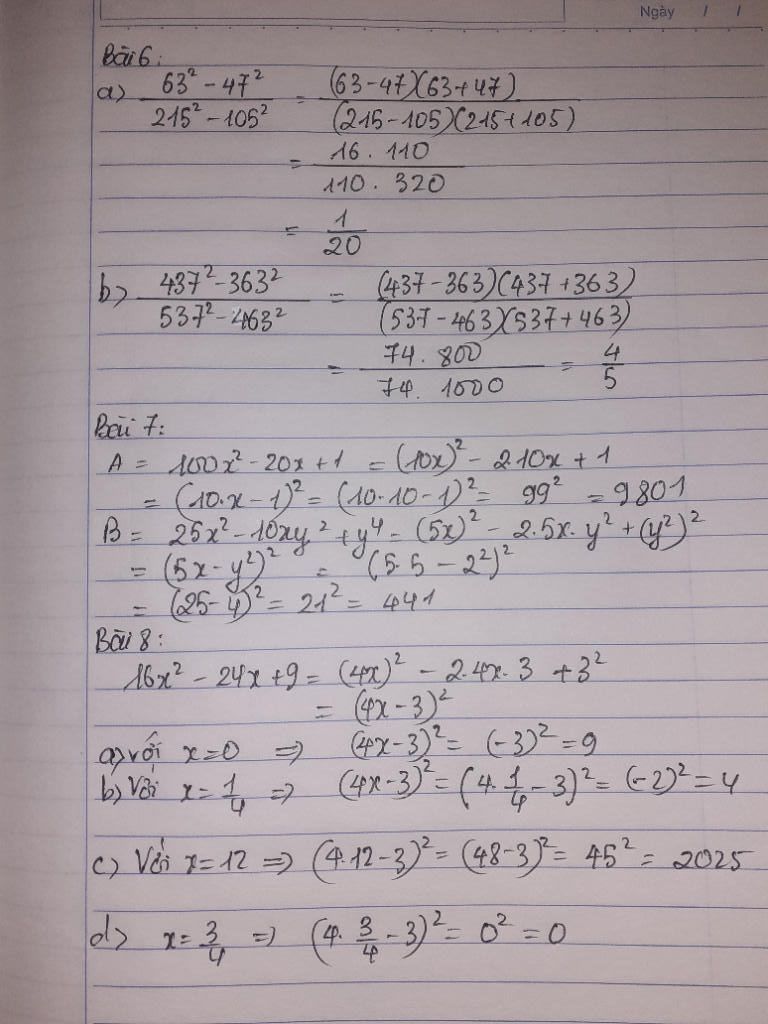 Ngày / /
Bài 6:
a) (63² - 47²)/(215² - 105²) = ((63-47)(63+47))/((215-105)(215+105))
= (16 . 110)/(110 . 320)
= 1/20
b) (437² - 363²)/(537² - 463²) = ((437-363)(437+363))/((537-463)(537+463))
= (74 . 800)/(74 . 1000) = 4/5
Bài 7:
A = 100x² - 20x + 1 = (10x)² - 2.10x + 1
= (10.x - 1)² = (10.10 - 1)² = 99² = 9801
B = 25x² - 10xy² + y⁴ = (5x)² - 2.5x.y² + (y²)²
= (5x - y²)² = (5.5 - 2²)²
= (25-4)² = 21² = 441
Bài 8:
16x² - 24x + 9 = (4x)² - 2.4x.3 + 3²
= (4x - 3)²
a) với x=0 => (4x-3)² = (-3)² = 9
b) Với x = 1/4 => (4x-3)² = (4. 1/4 - 3)² = (-2)² = 4
c) Với x=12 => (4.12-3)² = (48-3)² = 45² = 2025
d) x = 3/4 => (4. 3/4 - 3)² = 0² = 0